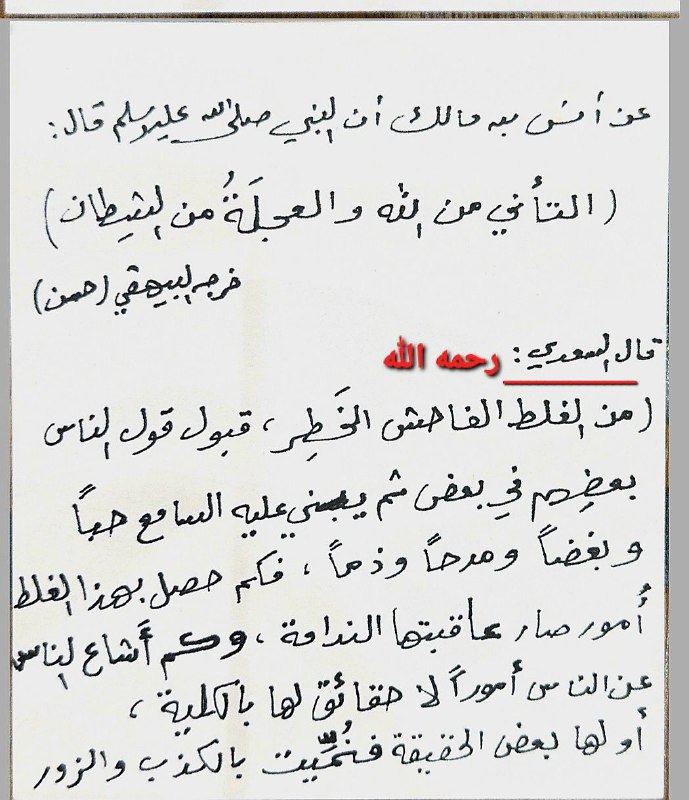 عن أنس بن مالك أن النبي صلى الله عليه وسلم قال:
(التأني من الله والعجلَةُ من الشيطان)
خرجه البيهقي (حسن)
قال السعدي: رحمه الله
(من الغلط الفاحش الخَطِر، قبول قول الناس
بعضِهم في بعض ثم يبني عليه السامع حباً
وبغضاً ومدحاً وذماً، فكم حصل بهذا الغلط
أُمور صار عاقبتها الندامة، وكم أَشاع الناس
عن الناس أموراً لا حقائق لها بالكلية،
أو لها بعض الحقيقة فنُمِّيت بالكذب والزور